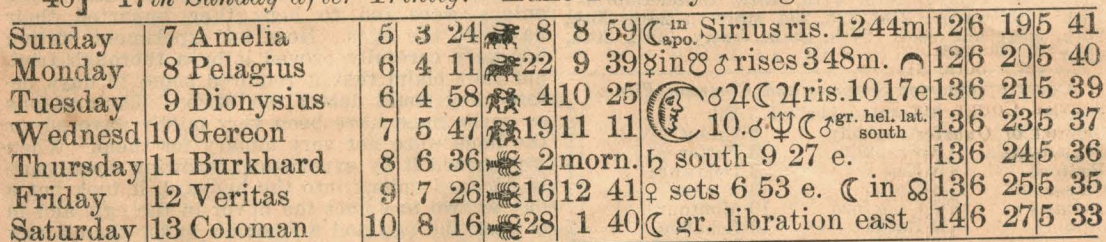 17th Sunday after Trinity.
Sunday 7 Amelia 5 3 24 8 8 59 ☾ in apo. Sirius ris. 12 44m 12 6 19 5 41
Monday 8 Pelagius 6 4 11 22 9 39 ☿ in ☋ ♂ rises 3 48m. 12 6 20 5 40
Tuesday 9 Dionysius 6 4 58 4 10 25 ☌ ♃ ☾ ♃ ris. 10 17e 13 6 21 5 39
Wednesd 10 Gereon 7 5 47 19 11 11 10. ☌ ♆ ☾ ♂ gr. hel. lat. south 13 6 23 5 37
Thursday 11 Burkhard 8 6 36 2 morn. ♄ south 9 27 e. 13 6 24 5 36
Friday 12 Veritas 9 7 26 16 12 41 ♀ sets 6 53 e. ☾ in ☊ 13 6 25 5 35
Saturday 13 Coloman 10 8 16 28 1 40 ☾ gr. libration east 14 6 27 5 33